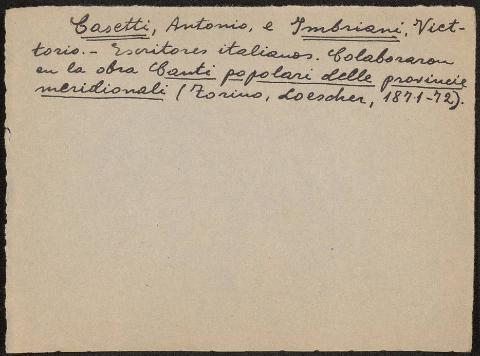 Casetti, Antonio, e Imbriani, Vict-
torio.- Escritores italianos. Colaboraron
en la obra Canti popolari delle provincie
meridionali (Torino, Loescher, 1871-72).